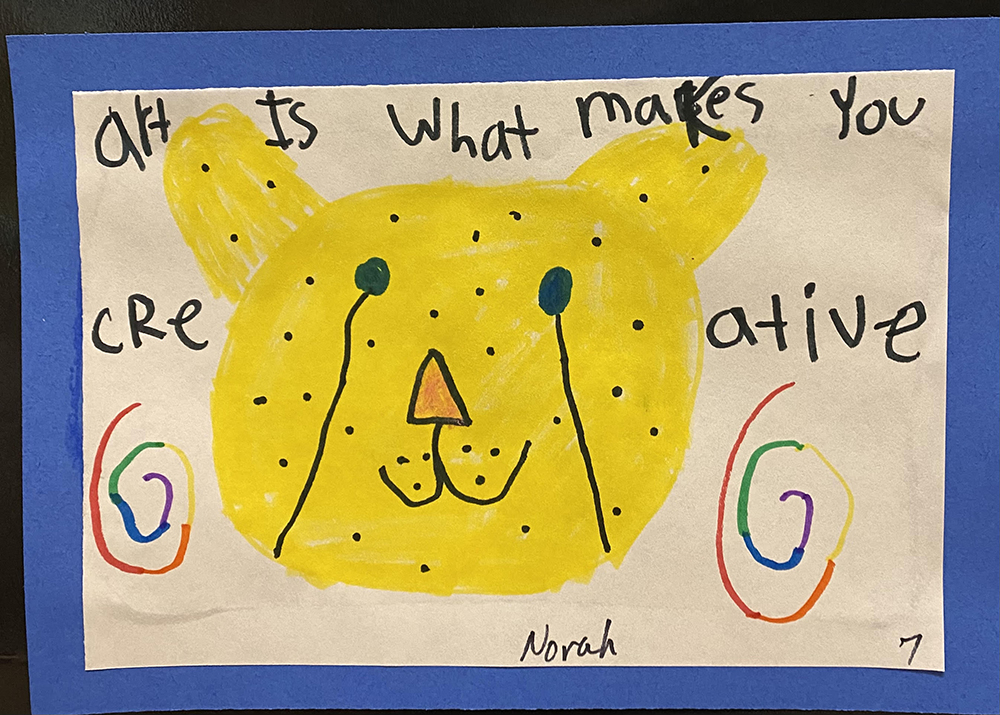 art Is What makes You
cre ative
Norah 7